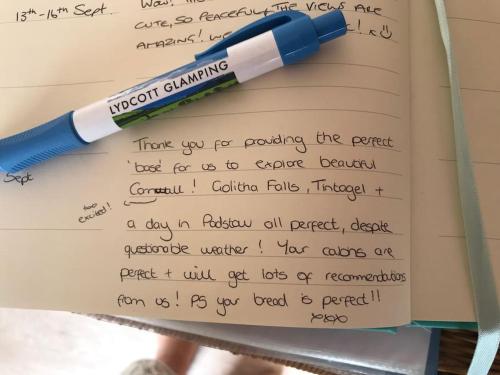 13th-16th Sept
Wow!
CUTE, SO PEACEFUL & THE VIEWS ARE
AMAZING! WE ! x
LYDCOTT GLAMPING
Sept
Thank you for providing the perfect
'base' for us to explore beautiful
Cornwall! Golitha Falls, Tintagel +
too
excited!
a day in Padstow all perfect, despite
questionable weather! Your cabins are
perfect + will get lots of recommendations
from us! PS your bread is perfect!!
xoxo